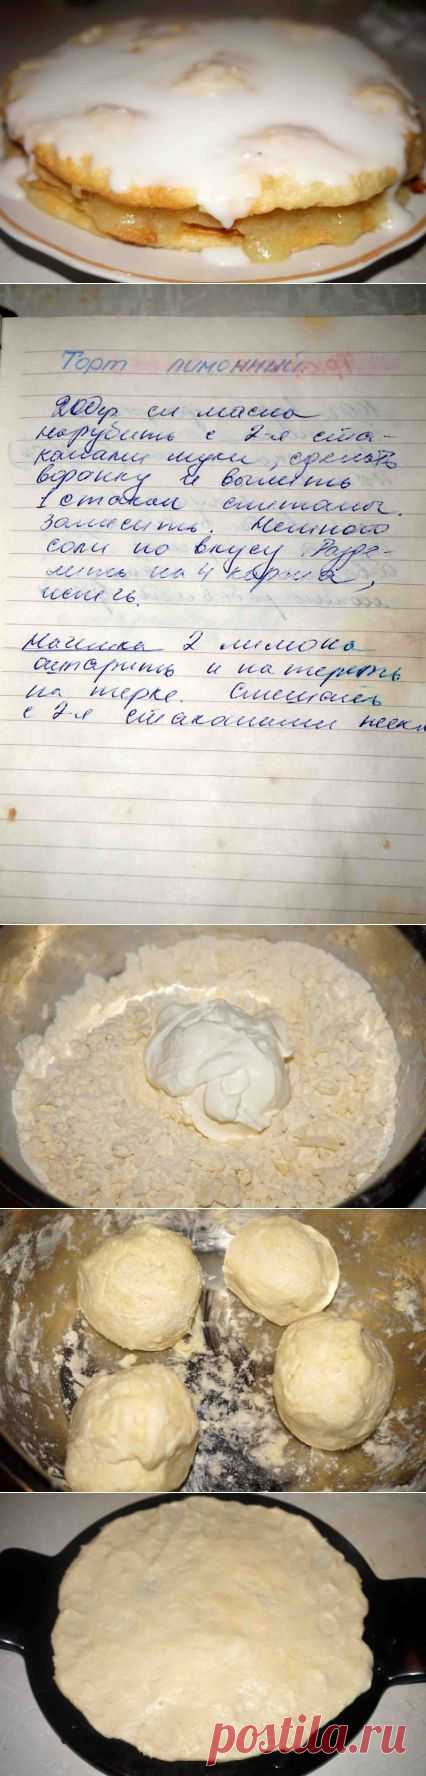 Торт лимонный.
200гр сл масла
нарубить с 2-я ста-
канами муки, сделать
воронку и вылить
1 стакан сметаны.
Замесить. Немного
соли по вкусу. Разде-
лить на 4 коржа,
испечь.
Начинка 2 лимона
ошпарить и натереть
на терке. Смешать
с 2-я стаканами песк
postila.ru